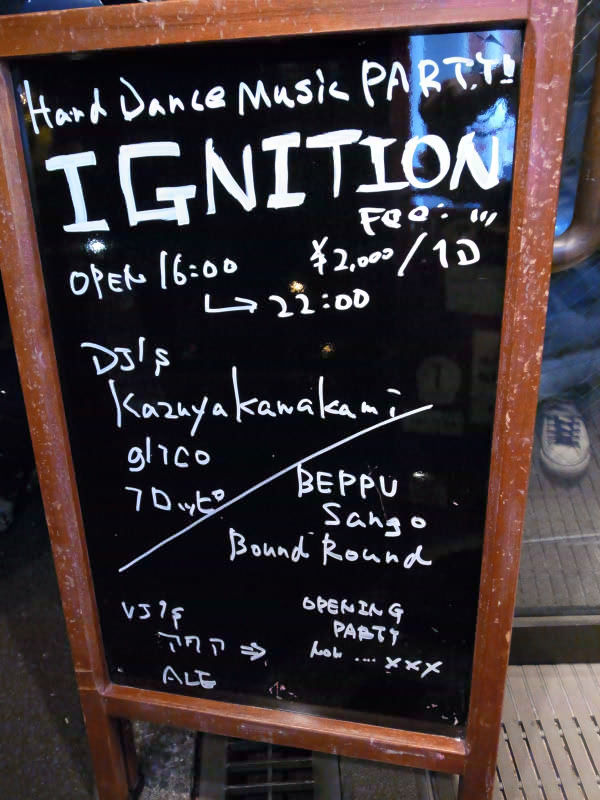 Hard Dance Music PARTY!
IGNITION
Fee:
OPEN 16:00 ¥2,000/1D
↳ 22:00
DJ's
Kazuya Kawakami
glico
フロッピ
BEPPU
Sango
Bound Round
VJ's
ALE
OPENING
PARTY
xxx